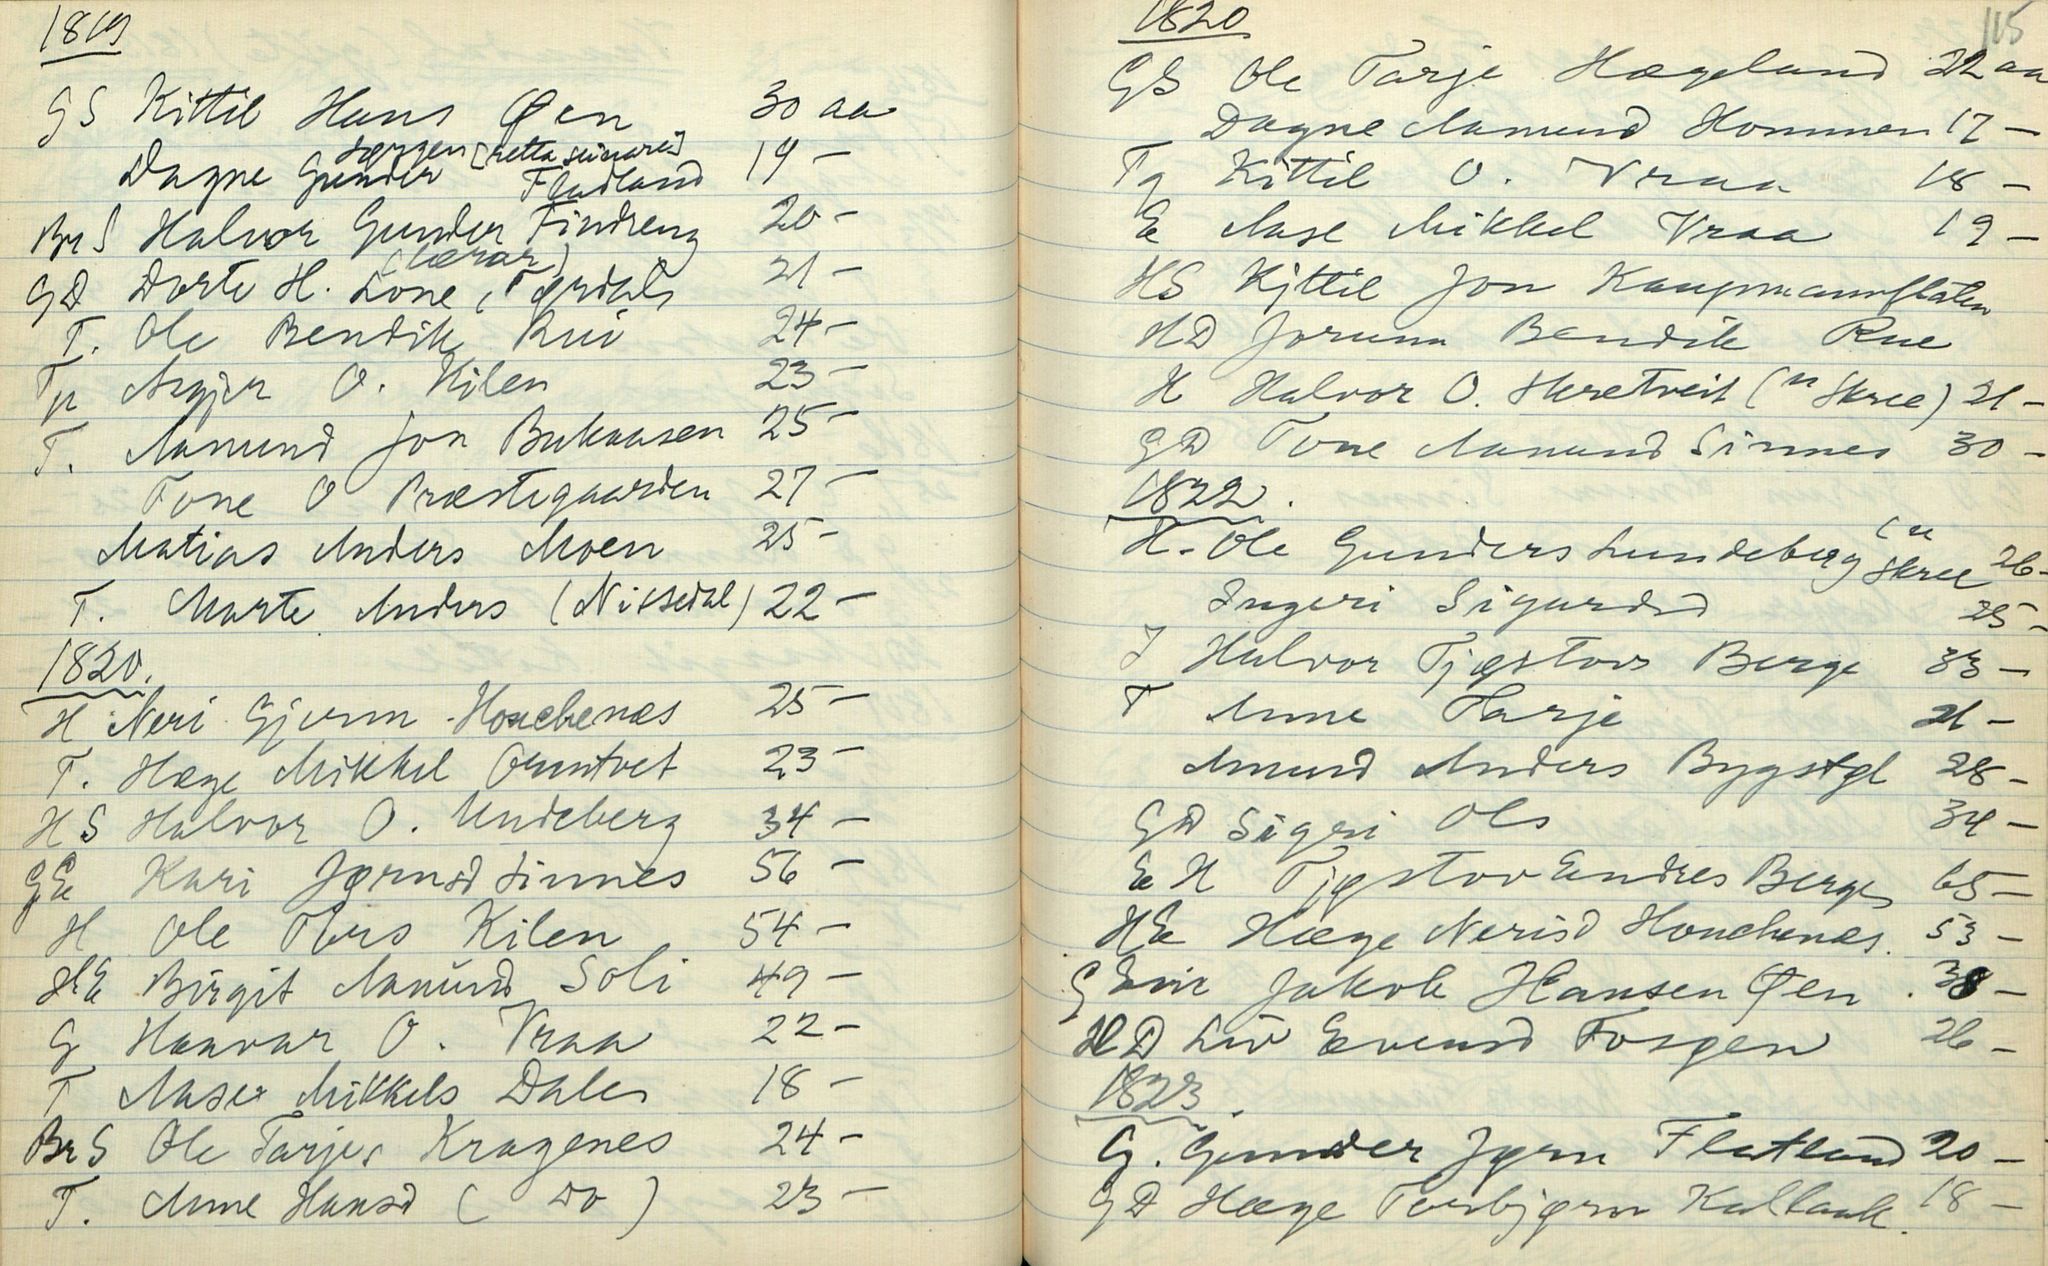 1819
GS Kittil Hans Øen 30 aa
Jørgen [retta seinare]
Dagne Gunder Fladland 19 –
Br S Halvor Gunder Findreng 20 –
(lærar)
GD Dorte H. Lone, Tørdals 21 –
T. Ole Bendik Rui 24 –
Tp Asgjer O. Kilen 23 –
T. Aamund Jon Bukaasen 25 –
Tone O Præstegaarden 27 –
Matias Anders Moen 25 –
T. Marte Anders (Nissedal) 22 –
1820.
H Neri Gjerm Honchenæs 25 –
T. Hæge Mikkel Gruntvet 23 –
H S Halvor O. Lundeberg 34 –
GE Kari Jørnsd Sinnes 56 –
H Ole Olers Kilen 54 –
HE Birgit Aamund Soli 49 –
G Haavar O. Vraa 22 –
T Aase Mikkels Dalen 18 –
Br S Ole Tarjes Kragenes 24 –
T. Anne Hansd ( Do ) 23 –
1820 115
GS Ole Tarje Hægeland 22 aa
Dagne Aamund Hommen 17 –
Tg Kittil O. Vraa 18 –
E Aase Mikkel Vraa 19 –
HS Kjittil Jon Kaupmannslåten
HD Jorunn Bendik Rue
H Halvor O. Skretveit (u Skree) 21 –
GD Tone Aamund Sinnes 30 –
1822.
H. Ole Gunders Lundeberg (u Skree 26 –
Ingeri Sigurdsd 25 –
I Halvor Tjøstovs Berge 33 –
T Anne Tarje 21 –
Amund Anders Bygstøl 28 –
GD Sigri Ols 34 –
E H Tjøstov Endres Berge 65 –
HE Hæge Nerisd Honchenæs. 53 –
G Em Jakob Hansen Øen . 38 –
HD Liv Evensd Fosgen 26 –
1823.
G. Gunder Jørn Flatland 20 –
GD Hæge Torbjørn Kallaak. 18 –